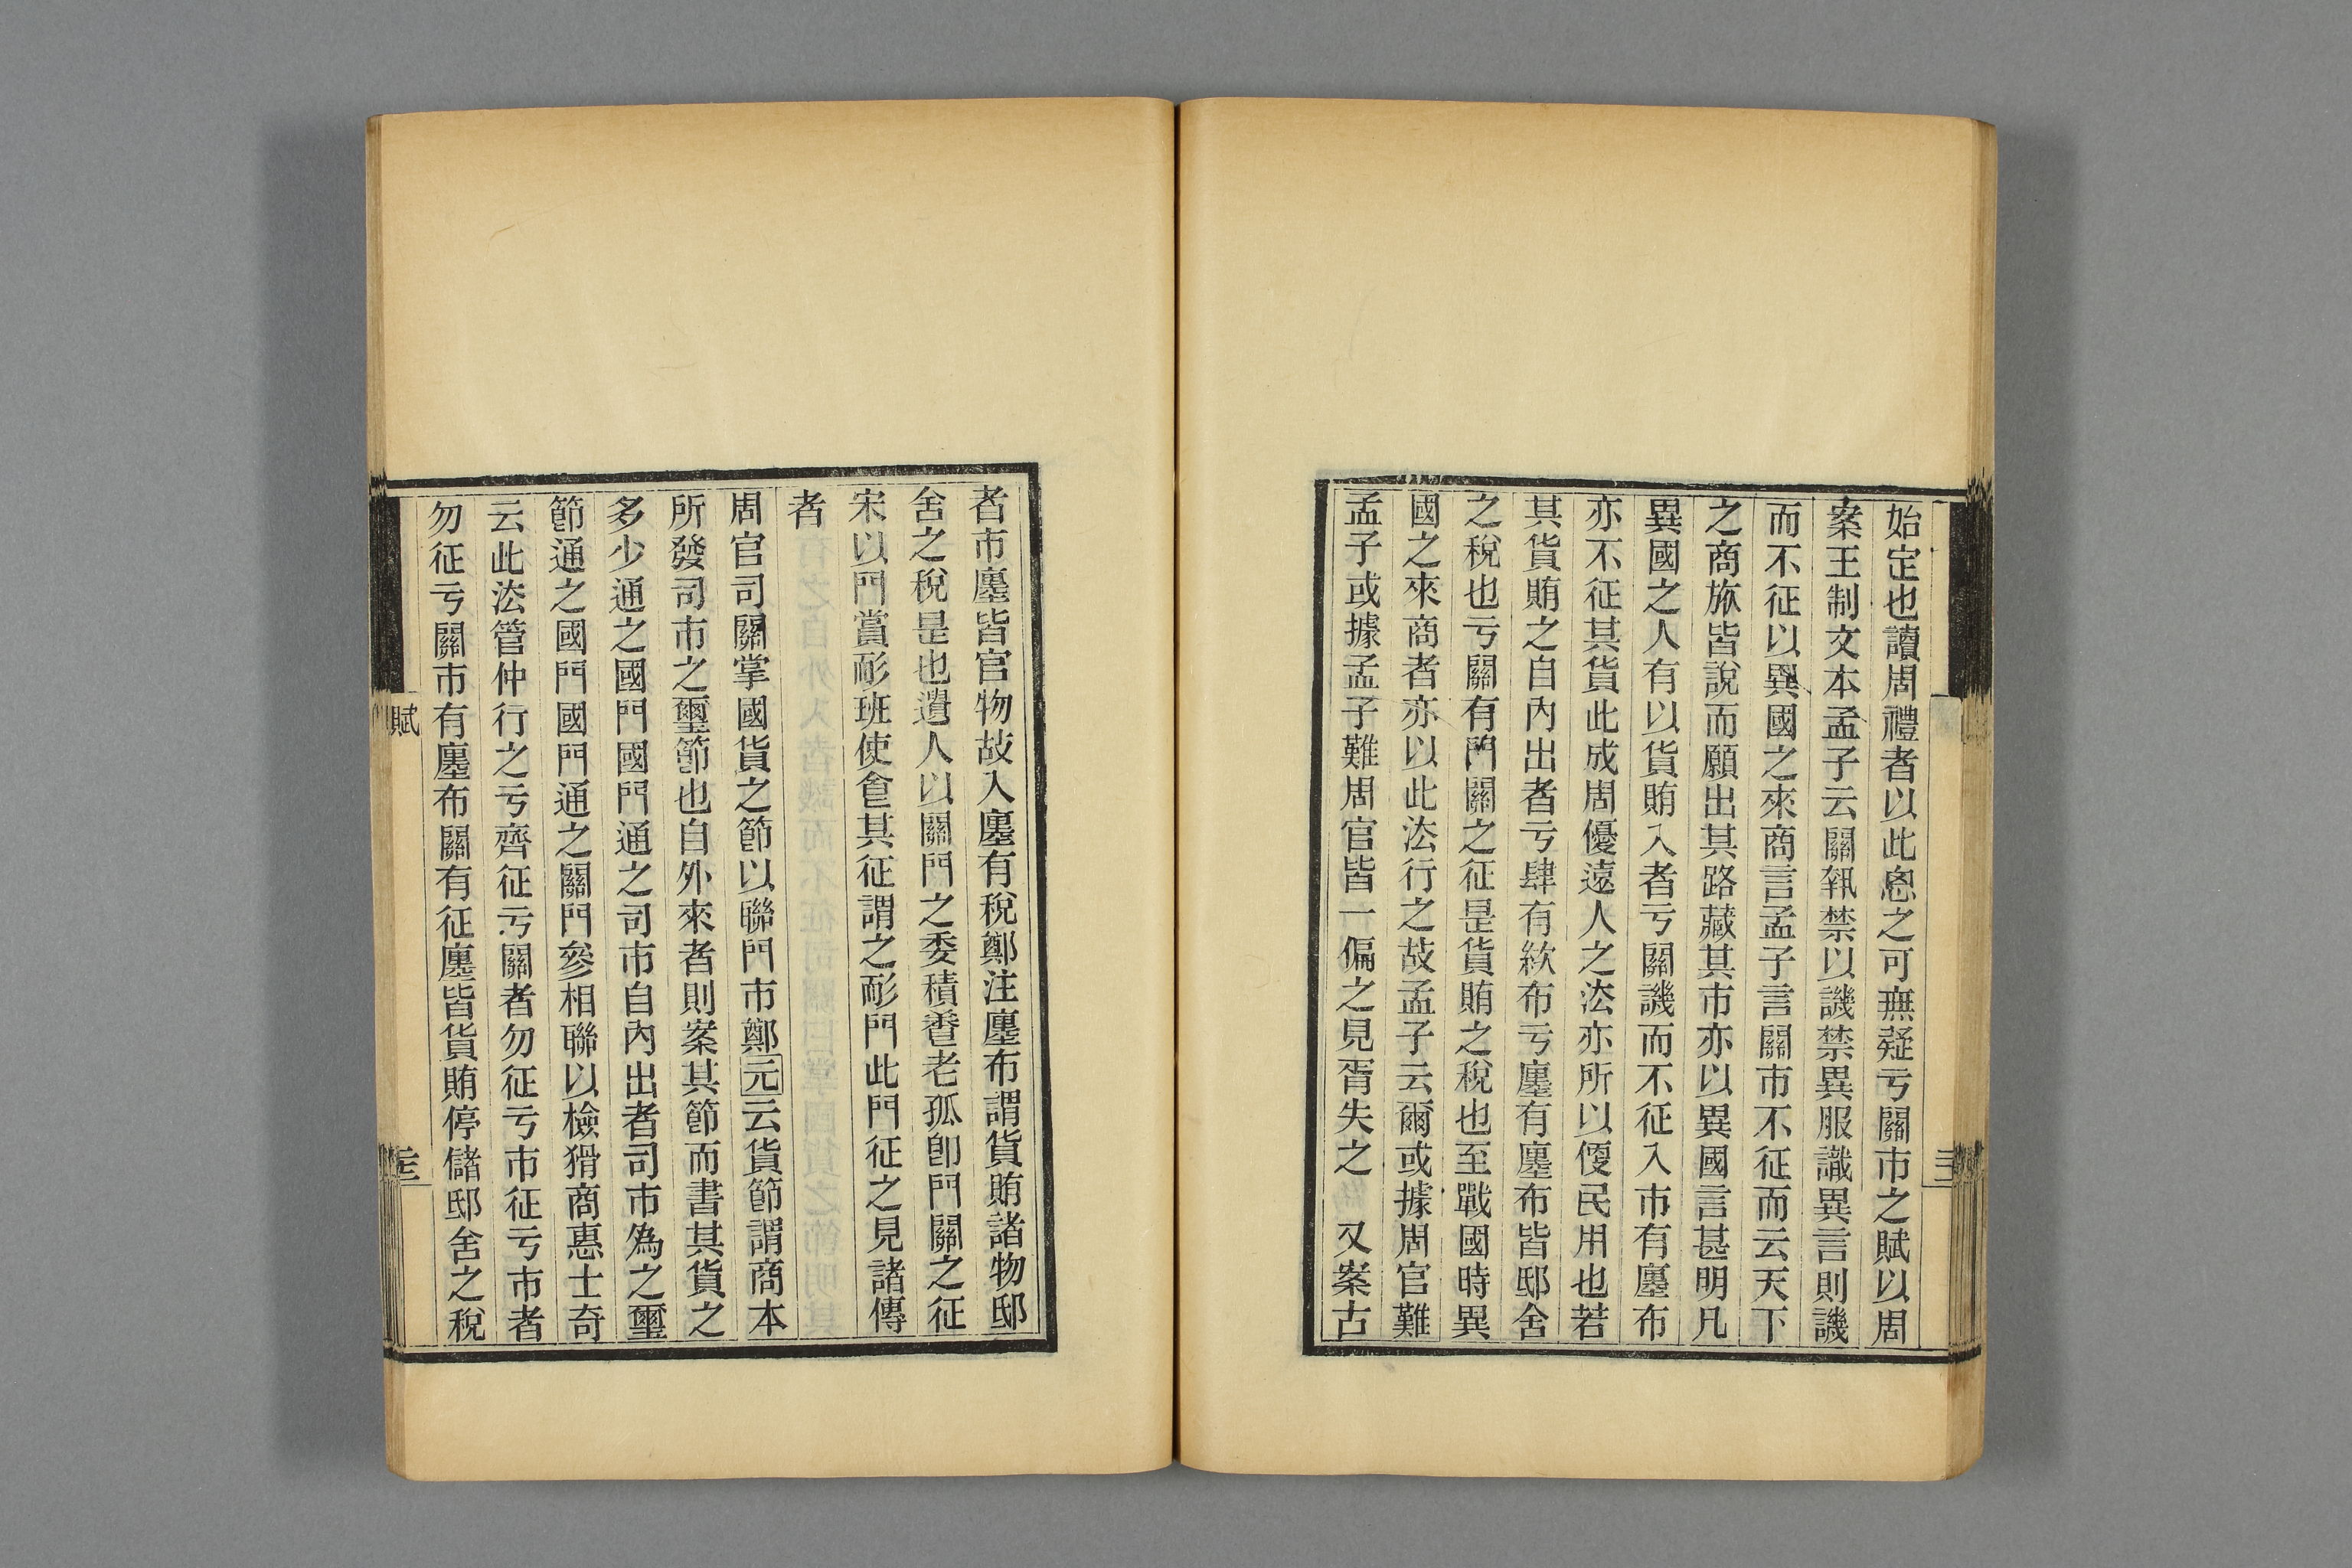 始定也讀周禮者以此恖之可無疑亏關市之賦以周
案王制文本孟子云關執禁以譏禁異服識異言則譏
而不征以異國之來商言孟子言關市不征而云天下
之商旅皆說而願出其路藏其市亦以異國言甚明凡
異國之人有以貨賄入者亏關譏而不征入市有廛布
亦不征其貨此成周優遠人之法亦所以便民用也若
其貨賄之自內出者亏肆有絘布亏廛有廛布皆邸舍
之稅也亏關有門關之征是貨賄之稅也至戰國時異
國之來商者亦以此法行之故孟子云爾或據周官難
孟子或據孟子難周官皆一偏之見胥失之 又案古
者市廛皆官物故入廛有稅鄭注廛布謂貨賄諸物邸
舍之稅是也遺人以關門之委積養老孤卽門關之征
宋以門賞耏班使食其征謂之耏門此門征之見諸傳
者
周官司關掌國貨之節以聯門市鄭元云貨節謂商本
所發司市之璽節也自外來者則案其節而書其貨之
多少通之國門國門通之司市自內出者司市為之璽
節通之國門國門通之關門參相聯以檢猾商惠士奇
云此法管仲行之亏齊征亏關者勿征亏市征亏市者
勿征亏關市有廛布關有征廛皆貨賄停儲邸舍之稅
賦